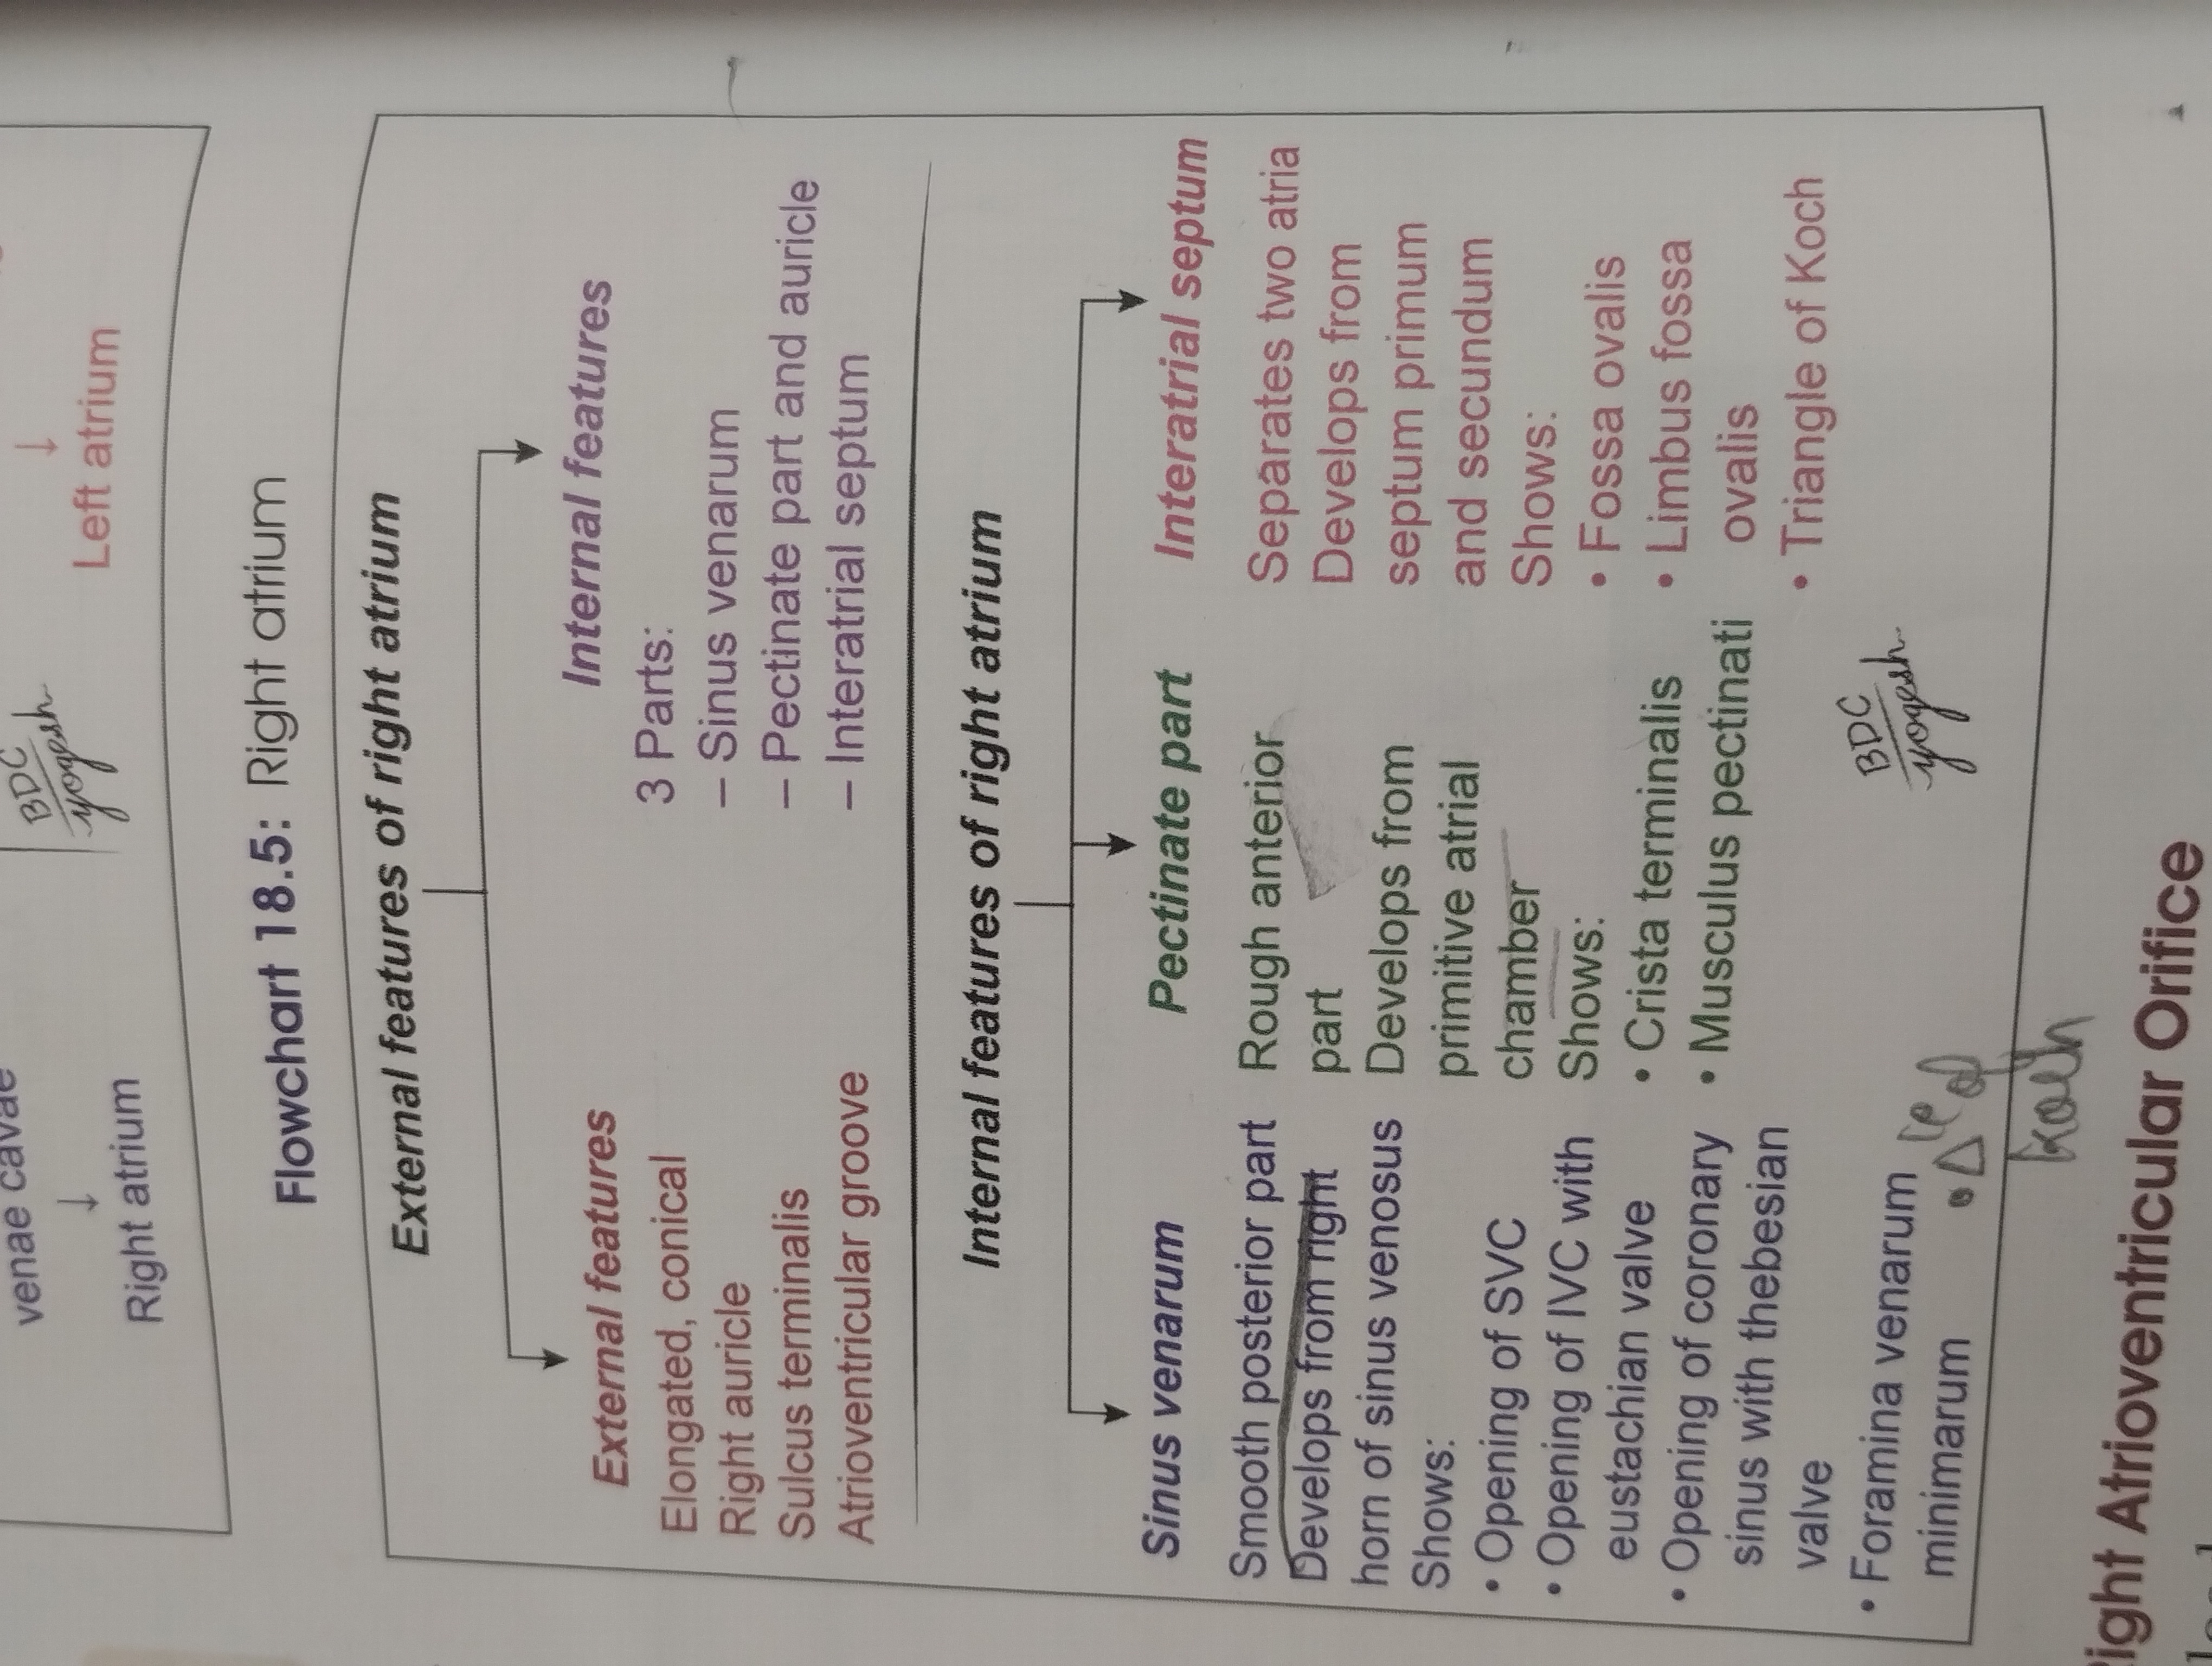 venae cavae
↓
Right atrium
BDC
yogesh
↓
Left atrium
Flowchart 18.5: Right atrium
External features of right atrium
External features
Elongated, conical
Right auricle
Sulcus terminalis
Atrioventricular groove
Internal features
3 Parts:
– Sinus venarum
– Pectinate part and auricle
– Interatrial septum
Internal features of right atrium
Sinus venarum
Smooth posterior part
Develops from right
horn of sinus venosus
Shows:
• Opening of SVC
• Opening of IVC with
eustachian valve
• Opening of coronary
sinus with thebesian
valve
• Foramina venarum
minimarum
• Δle of
Koch
Pectinate part
Rough anterior
part
Develops from
primitive atrial
chamber
Shows:
• Crista terminalis
• Musculus pectinati
BDC
yogesh
Interatrial septum
Separates two atria
Develops from
septum primum
and secundum
Shows:
• Fossa ovalis
• Limbus fossa
ovalis
• Triangle of Koch
Right Atrioventricular Orifice